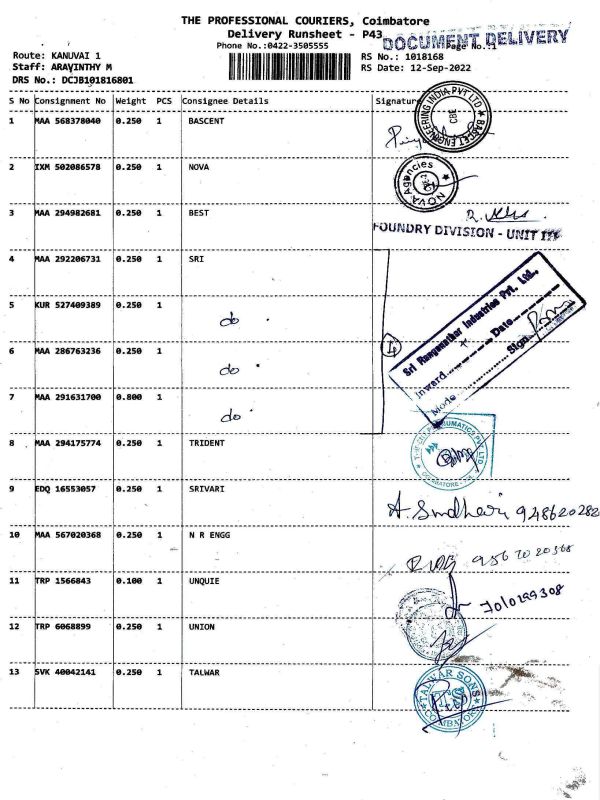 THE PROFESSIONAL COURIERS, Coimbatore
Delivery Runsheet - P43
DOCUMENT DELIVERY
Phone No.:0422-3505555
Page No.:1
Route: KANUVAI 1
RS No.: 1018168
Staff: ARAVINTHY M
RS Date: 12-Sep-2022
DRS No.: DCJB101816801
S No Consignment No Weight PCS Consignee Details Signature
1 MAA 568378040 0.250 1 BASCENT
BASCET ENGINEERING INDIA PVT LTD
CBE
2 IXM 502086578 0.250 1 NOVA
NOVA Agencies
3 MAA 294982681 0.250 1 BEST
FOUNDRY DIVISION - UNIT III
4 MAA 292206731 0.250 1 SRI
5 KUR 527409389 0.250 1 do
6 MAA 286763236 0.250 1 do
7 MAA 291631700 0.800 1 do
4
Sri Ranganathar Industries Pvt. Ltd.,
Inward Date
Mode Sign
8 MAA 294175774 0.250 1 TRIDENT
PNEUMATICS PVT LTD
COIMBATORE
9 EDQ 16553057 0.250 1 SRIVARI
948620282
10 MAA 567020368 0.250 1 N R ENGG
11 TRP 1566843 0.100 1 UNQUIE
12 TRP 6068899 0.250 1 UNION
13 SVK 40042141 0.250 1 TALWAR
TALWAR SONS
COIMBATORE